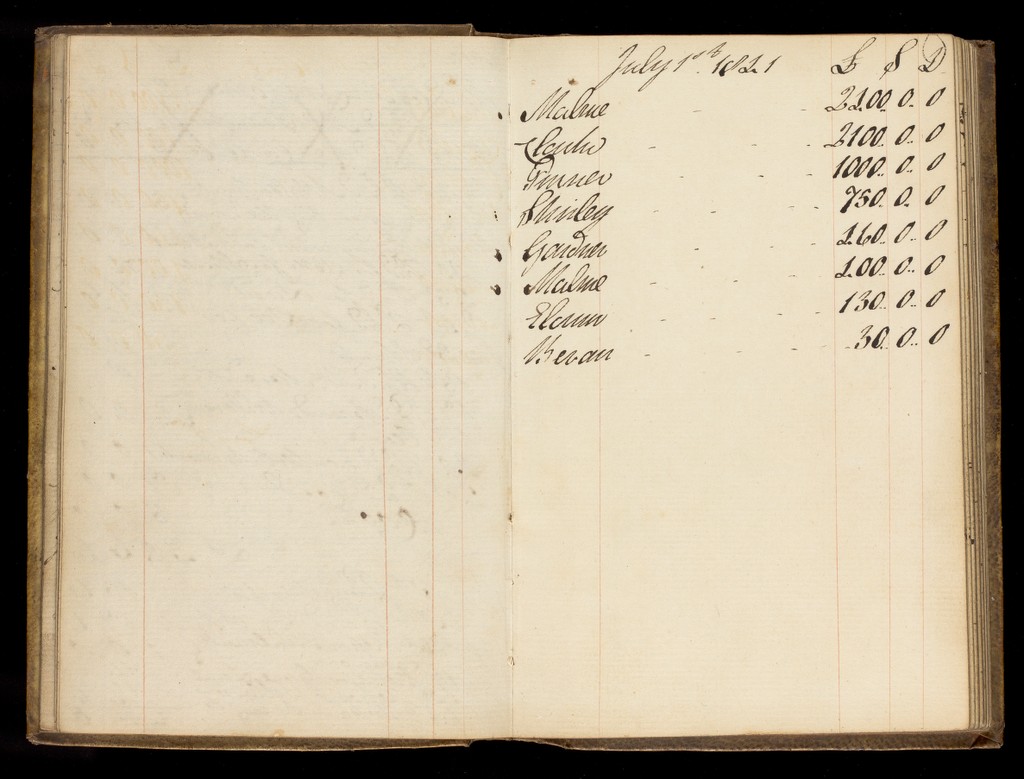 July 1st. 1821 £ S D
Malme - - 2100.. 0.. 0
- - 2100.. 0.. 0
- - - 1000.. 0.. 0
Shirley - - - 750.. 0.. 0
Gardner - - - 160.. 0.. 0
Malme - - - 100.. 0.. 0
- - - 130.. 0.. 0
Bevan - - - 30.. 0.. 0